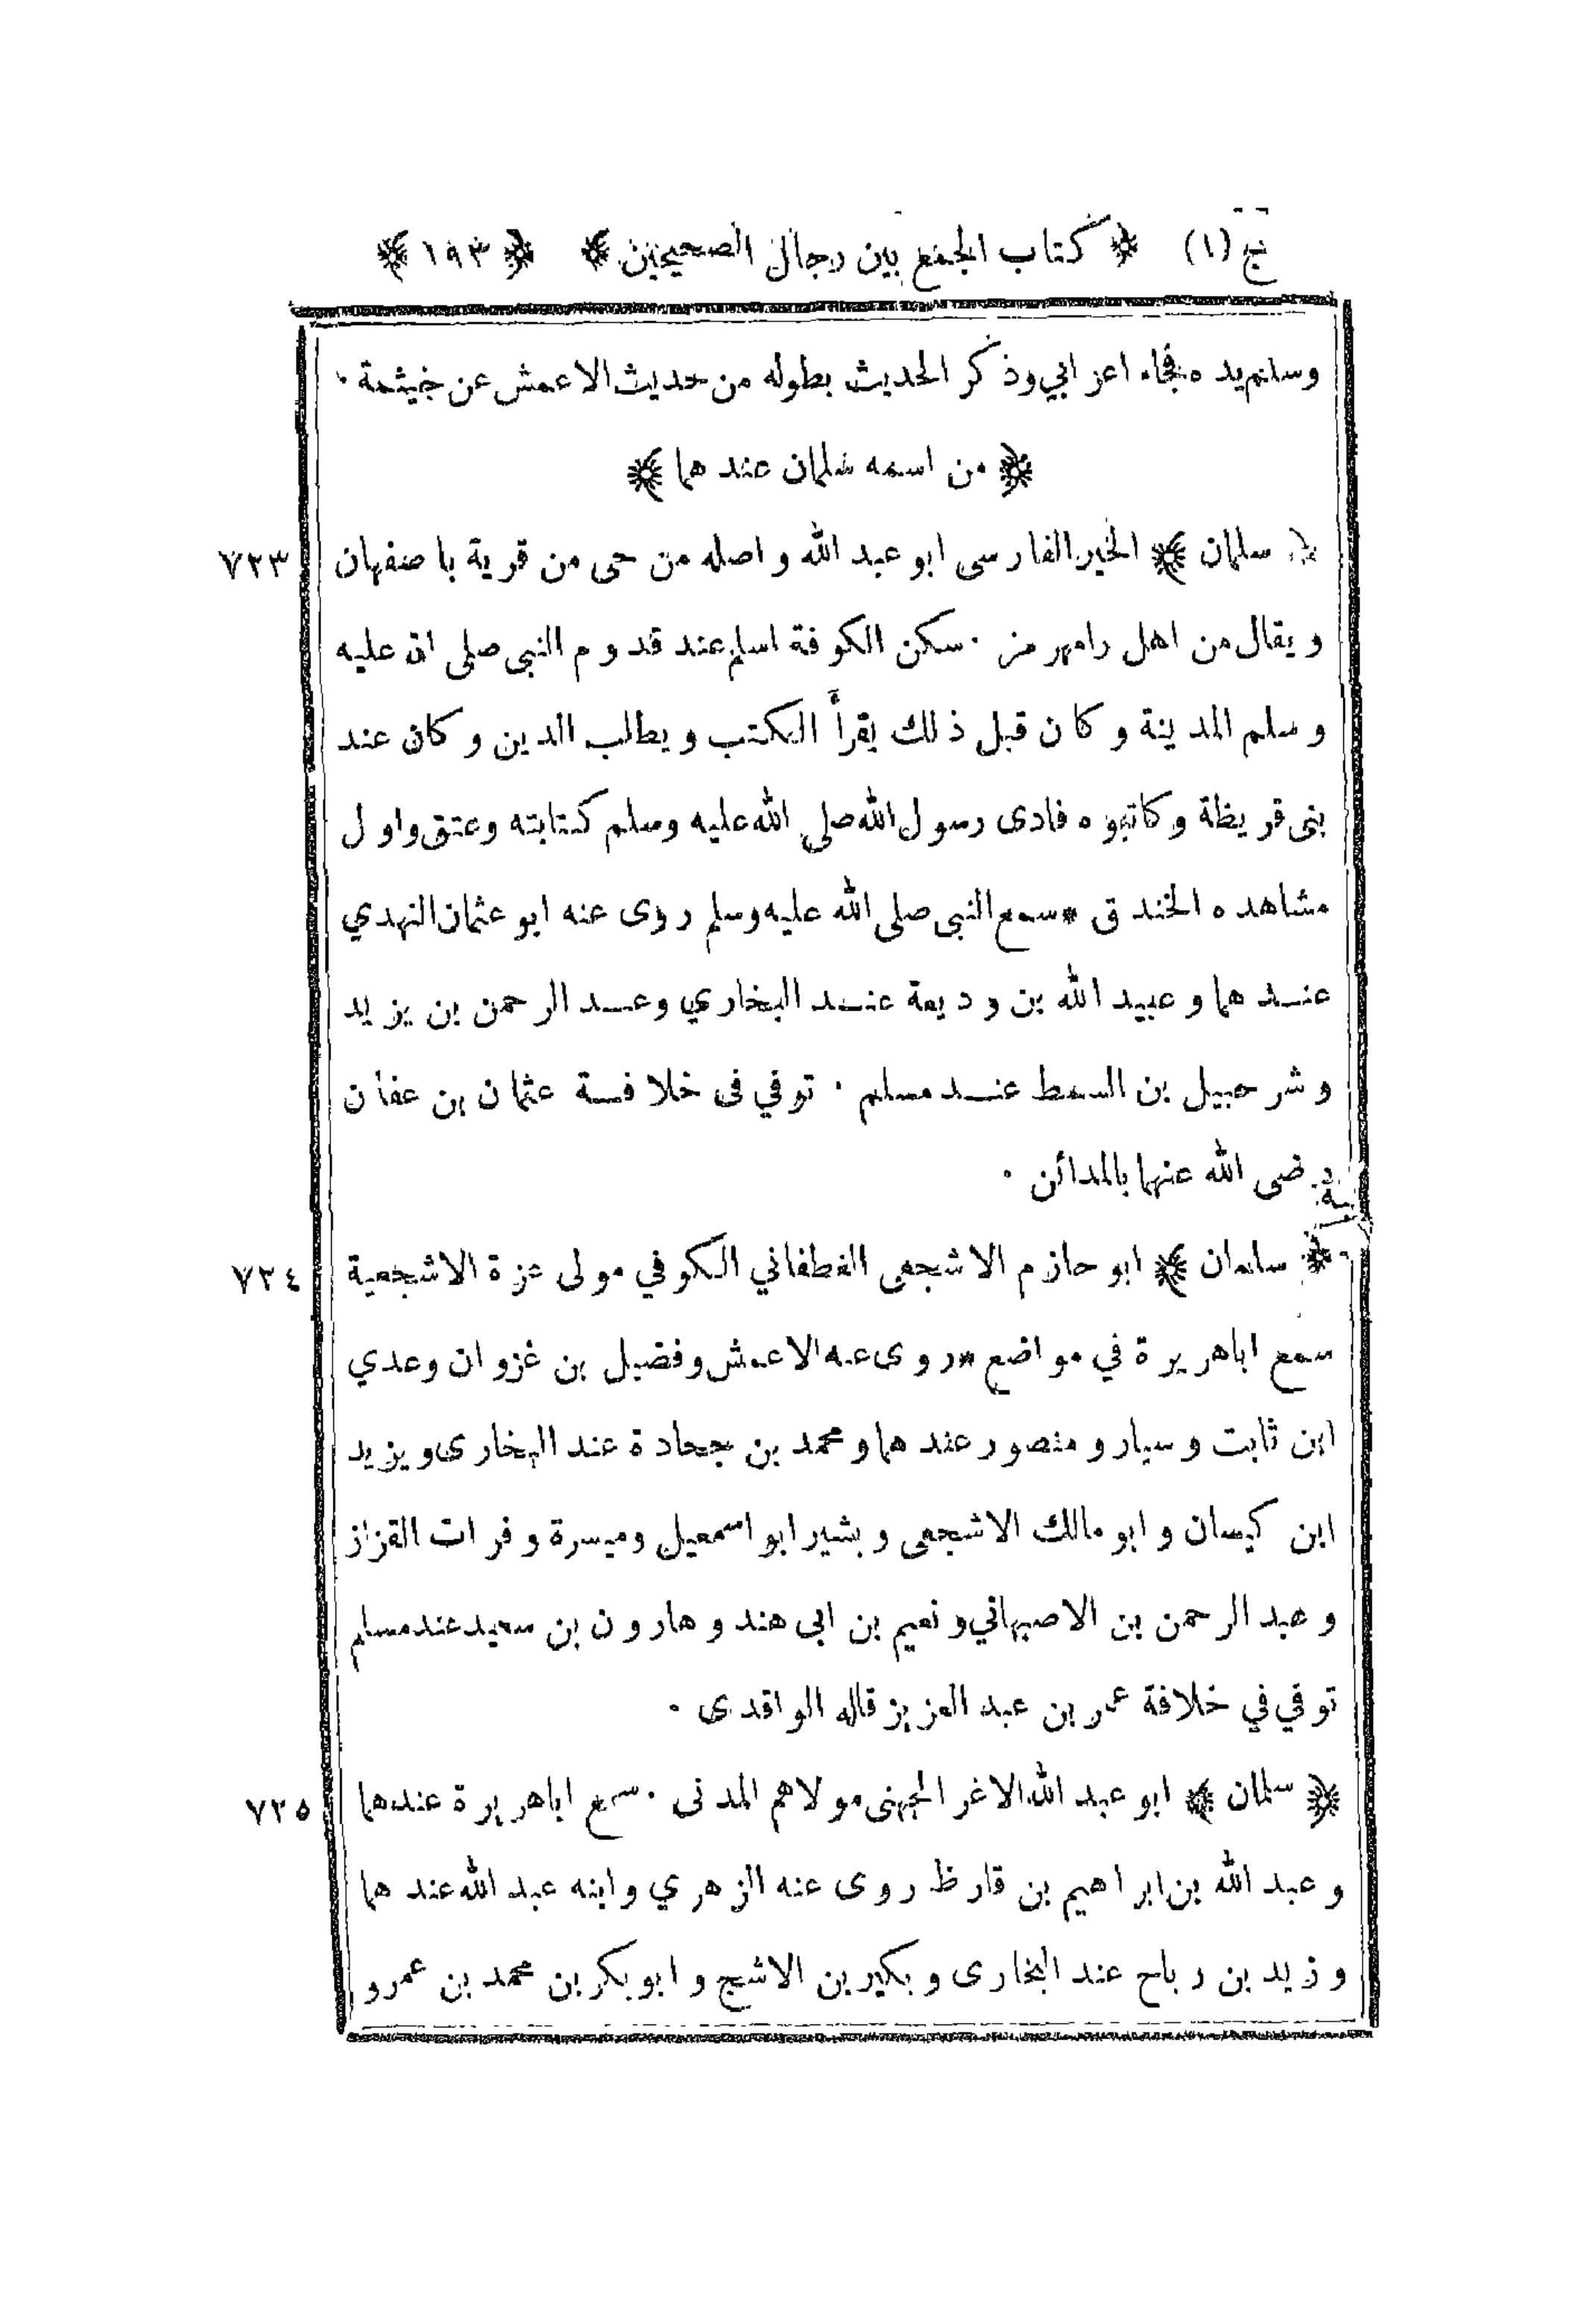 ج (١) ﴿ كتاب الجمع بين رجال الصحيحين ﴾ ﴿ ١٩٣ ﴾
وسلم يده فجاء اعرابي وذكر الحديث بطوله من حديث الاعمش عن خيثمة ٠
﴿ من اسمه سلمان عندهما ﴾
﴿ سلمان ﴾ الخير الفارسى ابو عبد الله واصله من حى من قرية باصفهان ٧٢٣
ويقال من اهل رامهرمز ٠ سكن الكوفة اسلم عند قدوم النبى صلى الله عليه
وسلم المدينة وكان قبل ذلك يقرأ الكتب ويطلب الدين وكان عند
بنى قريظة وكاتبوه فادى رسول الله صلى الله عليه وسلم كتابته وعتق واول
مشاهده الخندق * سمع النبى صلى الله عليه وسلم روى عنه ابو عثمان النهدي
عندهما وعبيد الله بن وديعة عند البخاري وعبد الرحمن بن يزيد
وشرحبيل بن السمط عند مسلم ٠ توفي فى خلافة عثمان بن عفان
رضى الله عنهما بالمدائن ٠
﴿ سلمان ﴾ ابو حازم الاشجعى الغطفاني الكوفي مولى عزة الاشجعية ٧٢٤
سمع اباهريرة في مواضع * روى عنه الاعمش وفضيل بن غزوان وعدي
ابن ثابت وسيار ومنصور عندهما ومحمد بن جحادة عند البخارى ويزيد
ابن كيسان وابو مالك الاشجعى وبشير ابو اسمعيل وميسرة وفرات القزاز
وعبد الرحمن بن الاصبهاني ونعيم بن ابى هند وهارون بن سعيد عند مسلم
توفي في خلافة عمر بن عبد العزيز قاله الواقدى ٠
﴿ سلمان ﴾ ابو عبد الله الاغر الجهنى مولاهم المدنى ٠ سمع اباهريرة عندهما ٧٢٥
وعبد الله بن ابراهيم بن قارظ روى عنه الزهري وابنه عبد الله عندهما
وزيد بن رباح عند البخارى وبكير بن الاشج وابوبكر بن محمد بن عمرو